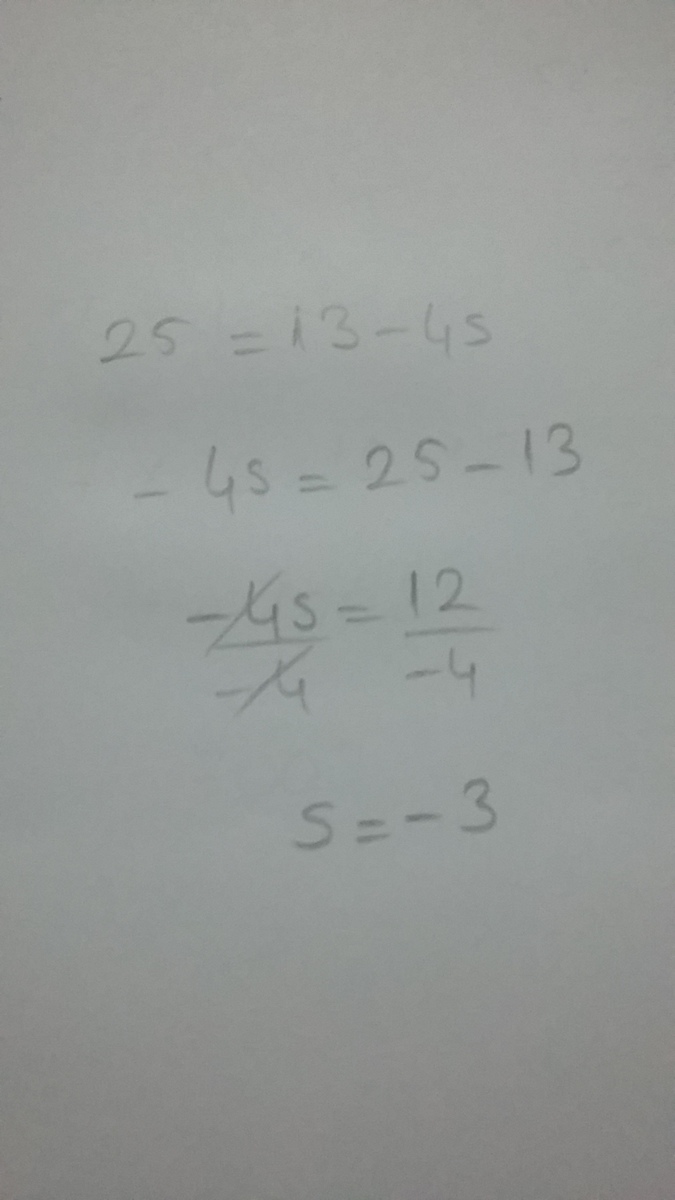 25 = 13 - 4s
- 4s = 25 - 13
-4s/-4 = 12/-4
s = - 3